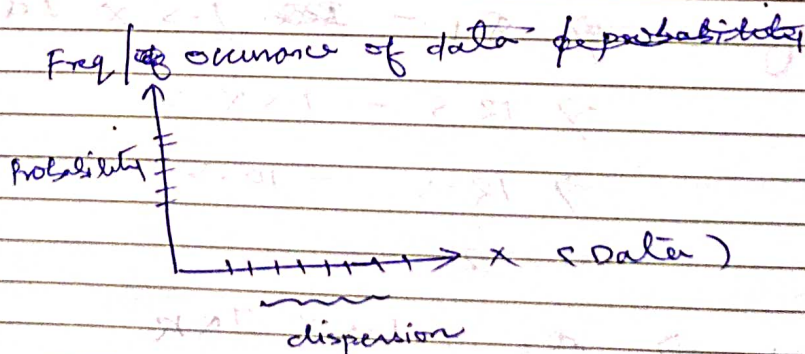 Freq / occurance of data
Probability
X (Data)
dispersion